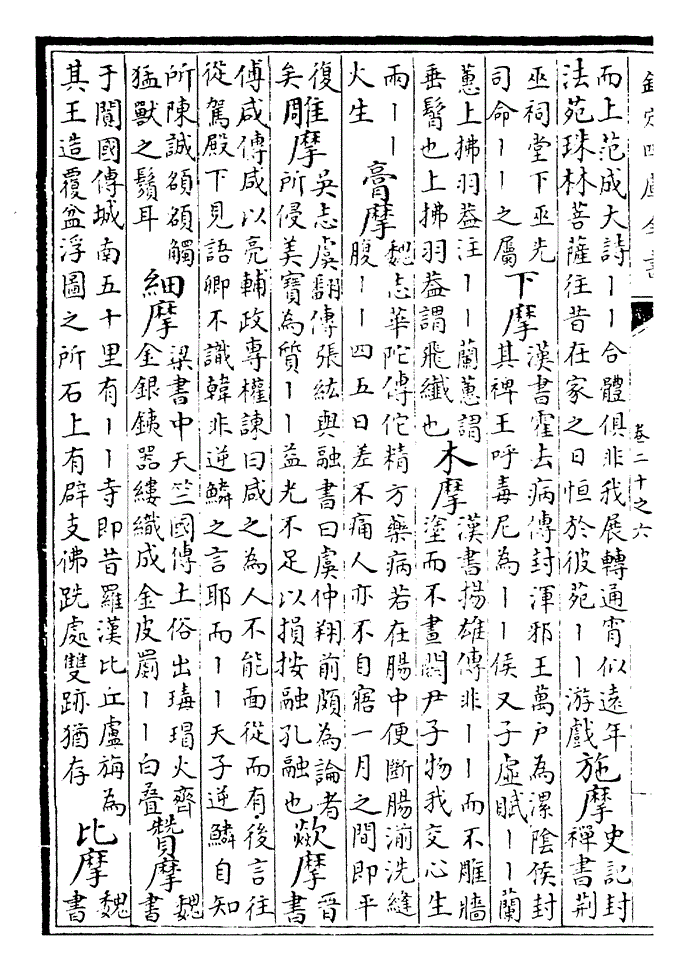 欽定四庫全書
卷二十之六
而上范成大詩丨丨合體俱非我展轉通宵似遠年
法苑珠林菩薩往昔在家之日恒於彼苑丨丨游戲
施摩
史記封
禪書荆
巫祠堂下巫先
司命丨丨之屬
下摩
漢書霍去病傳封渾邪王萬户為漯陰侯封
其裨王呼毒尼為丨丨侯又子虛賦丨丨蘭
蕙上拂羽葢注丨丨蘭蕙謂
垂髾也上拂羽葢謂飛纖也
木摩
漢書揚雄傳非丨丨而不雕牆
塗而不畫關尹子物我交心生
兩丨丨
火生
膏摩
魏志華陀傳佗精方藥病若在腸中便斷腸湔洗縫
腹丨丨四五日差不痛人亦不自寤一月之間即平
復
矣
雕摩
吳志虞翻傳張紘與融書曰虞仲翔前頗為論者
所侵美寶為質丨丨益光不足以損按融孔融也
歘摩
晉
書
傅咸傳咸以亮輔政專權諫曰咸之為人不能面從而有後言往
從駕殿下見語卿不識韓非逆鱗之言耶而丨丨天子逆鱗自知
所陳誠頟頟觸
猛獸之鬚耳
細摩
梁書中天竺國傳土俗出瑇瑁火齊
金銀銕器縷織成金皮罽丨丨白叠
贊摩
魏
書
于闐國傳城南五十里有丨丨寺即昔羅漢比丘盧旃為
其王造覆盆浮圖之所石上有辟支佛跣處雙跡猶存
比摩
魏
書